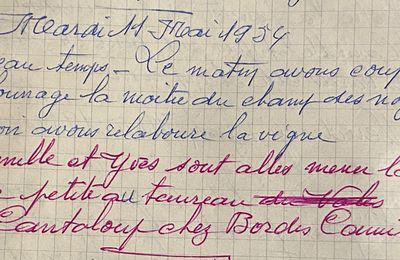 Mardi 11 Mai 1954
eau temps - Le matin avons coup
ourrage la moitie du champ des no
oir avons relaboure la vigne
mille et Yves sont alles mener l
petite au taureau du Valas
Cantaloup chez Bordes Cami